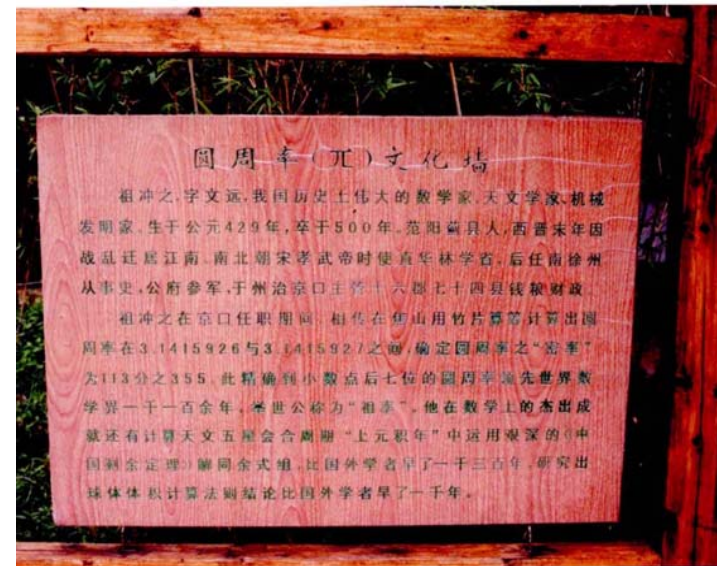 圆周率(兀)文化墙
祖冲之,字文远,我国历史上伟大的数学家、天文学家、机械
发明家。生于公元429年,卒于500年。范阳蓟县人,西晋末年因
战乱迁居江南。南北朝宋孝武帝时使直华林学省,后任南徐州
从事史,公府参军,于州治京口主管十六郡七十四县钱粮财政。
祖冲之在京口任职期间,相传在焦山用竹片算筹计算出圆
周率在3.1415926与3.1415927之间,确定圆周率之“密率”
为113分之355。此精确到小数点后七位的圆周率领先世界数
学界一千一百余年,举世公称为“祖率”。他在数学上的杰出成
就还有计算天文五星会合周期“上元积年”中运用艰深的《中
国剩余定理》解同余式组,比国外学者早了一千三百年,研究出
球体体积计算法则结论比国外学者早了一千年。